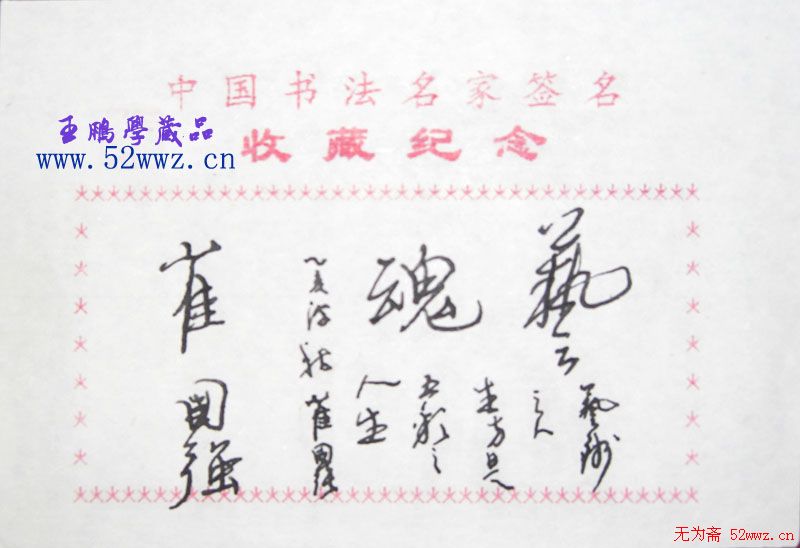 中国书法名家签名
王鹏學藏品
收藏纪念
www.52wwz.cn
藝
魂
藝術
之人
生方
五彩之
人生
崔国强
崔國强
无为斋 52wwz.cn